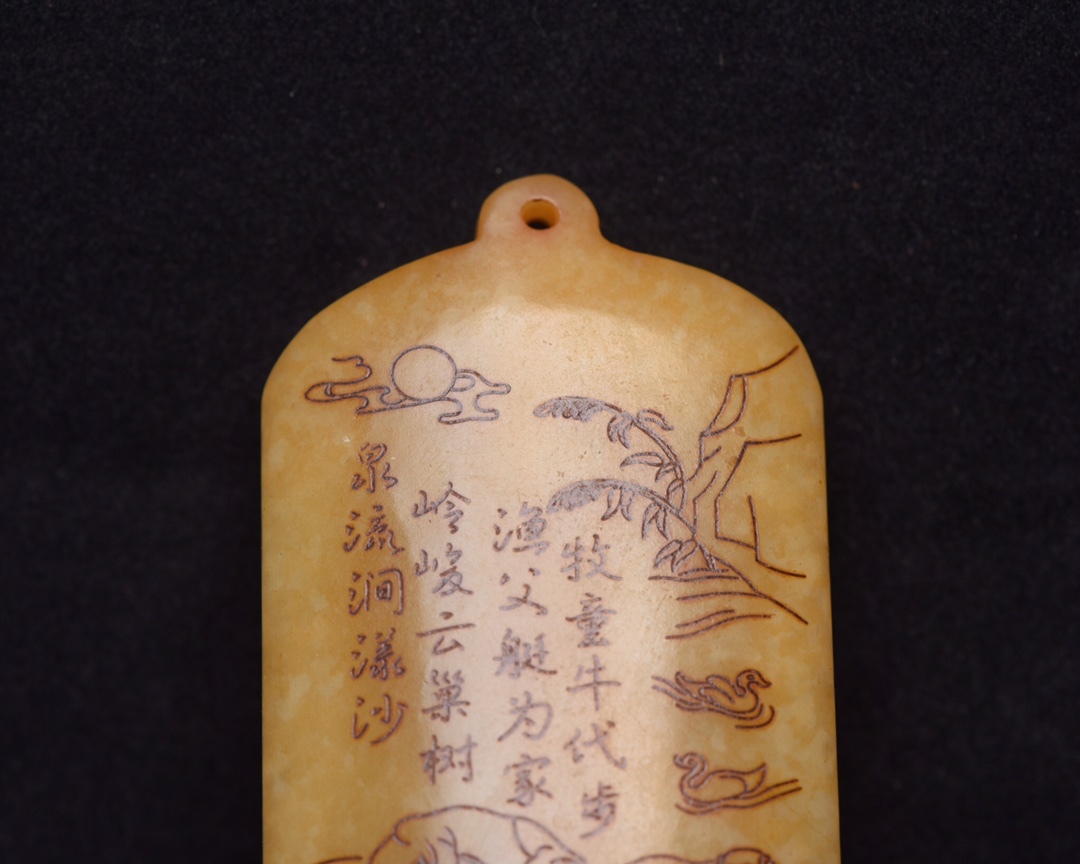 牧童牛代步
渔父艇为家
岭峻云巢树
泉流涧漾沙